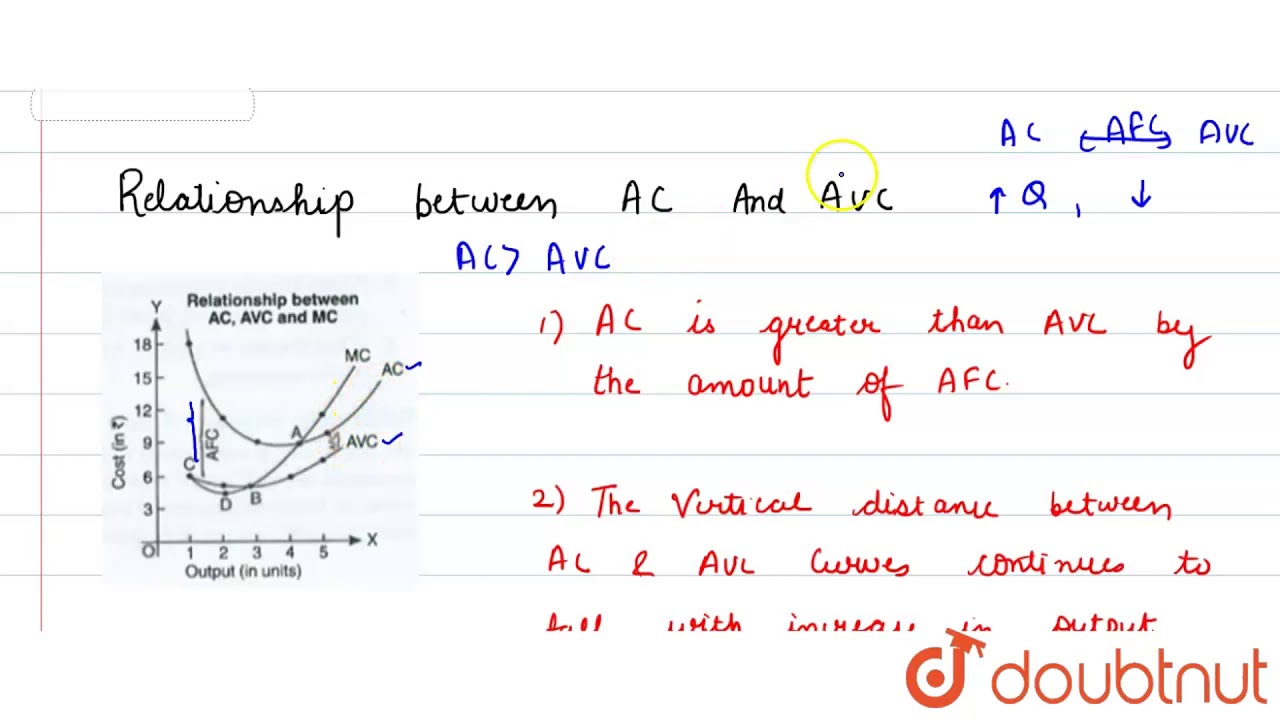 AC AFC AVC
Relationship between AC And AVC ↑ Q, ↓
AC > AVC
Relationship between
AC, AVC and MC
Y
18
15
12
9
6
3
O
Cost (in ₹)
MC
AC
AVC
AFC
A
C
D
B
1 2 3 4 5 X
Output (in units)
1) AC is greater than AVC by
the amount of AFC.
2) The Vertical distance between
AC & AVC Curves continues to
fall with increase in output
doubtnut